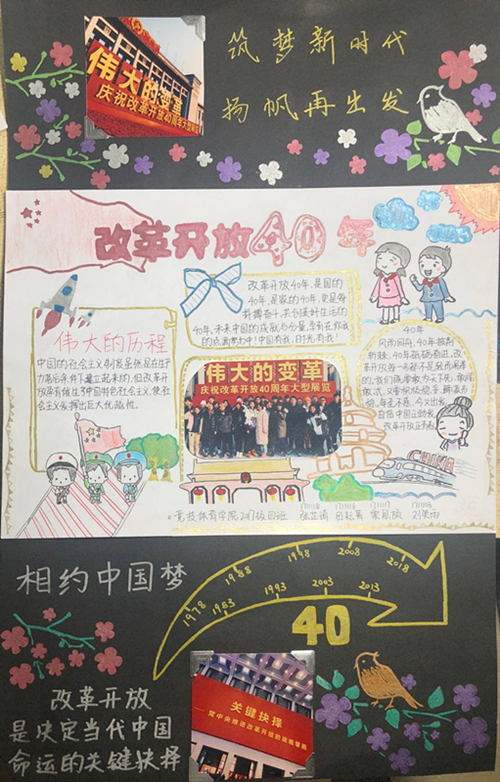 筑梦新时代
扬帆再出发
伟大的变革
庆祝改革开放40周年大型展览
改革开放40年
改革开放40年,是国的
40年,是家的40年,更是每
40年,未来中国的成就与分量,
中国有我,时光有我!
伟大的历程
中国的社会主义制度虽然是在生产
力落后条件下建立起来的,但改革开
放孕育催生中国特色社会主义,使社
会主义发挥出巨大优越性。
40年
风雨同舟,40年披荆
斩棘,40年砥砺奋进,改
革开放每一步都不是轻而易举
的,我们既要敢为天下先、敢闯
敢试,又要
自信中国正
改革开放正
伟大的变革
庆祝改革开放40周年大型展览
CHINA
竞技体育学院
相约中国梦
1978
1983
1988
1993
1998
2003
2008
2013
2018
40
改革开放
是决定当代中国
命运的关键抉择
关键抉择